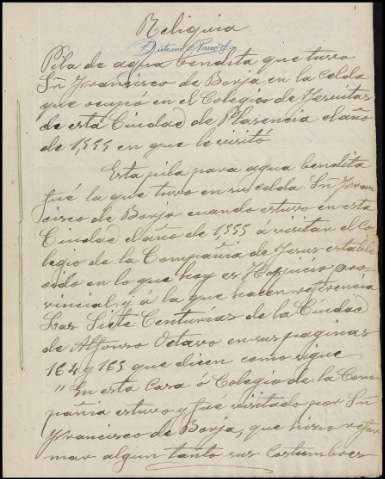 Reliquia
Pila de agua bendita que tuvo
Sn Francisco de Borja en la Celda
que ocupó en el Colegio de Jesuitas
de está Ciudad de Plasencia el año
de 1,555 en que le visitó
Esta pila para agua bendita
fué la que tuvo en su celda Sn Fran
cisco de Borja cuando estuvo en esta
Ciudad el año de 1555 a visitar el Co
legio de la Compañia de Jesus estable
cido en lo que hoy es Hospicio pro
vincial, y á la que hacen referencia
Las Siete Centurias de la Ciudad
de Alfonso Octavo en sus paginas
164 y 165 que dicen como sigue
" En esta Casa ó Colegio de la Com
pañia estuvo y fué visitado por Sn
Francisco de Borja, que hizo refor
mar algun tanto sus costumbres